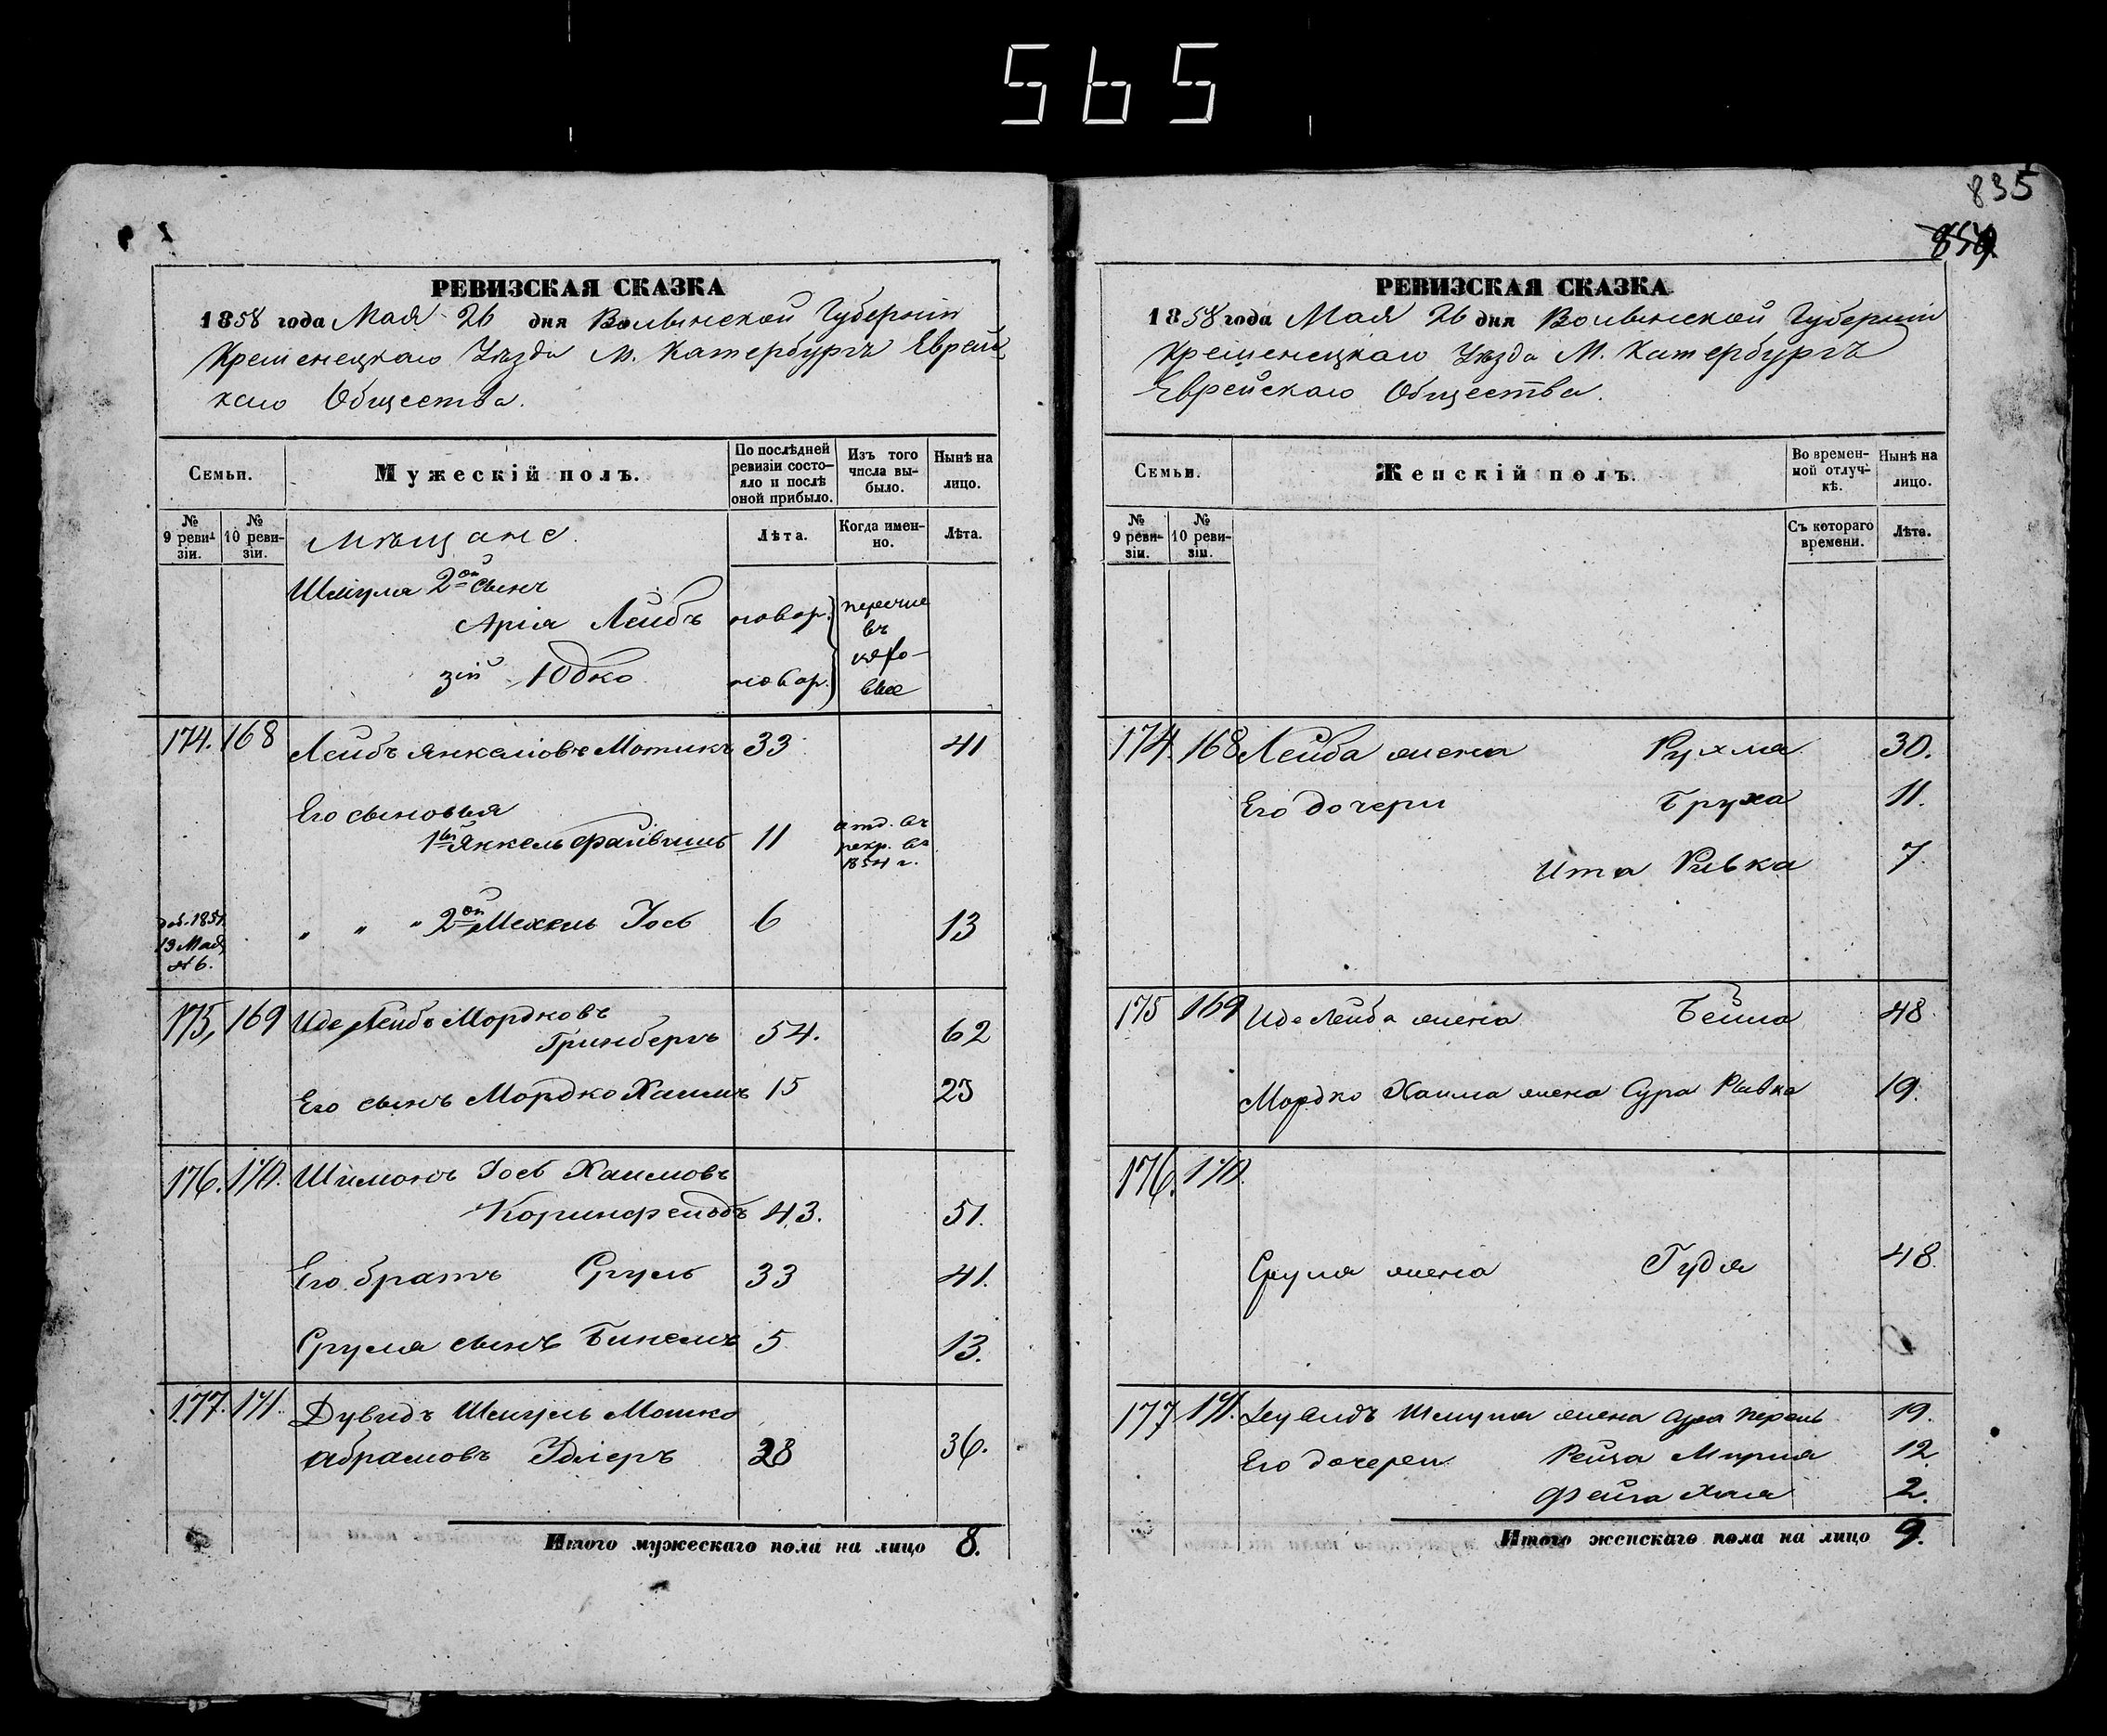 565
РЕВИЗСКАЯ СКАЗКА
1858 года Мая 26 дня Волынской Губерніи
Кременецкаго Уѣзда М. Катербургъ Еврейс
каго Общества.
Семьи.
Мужескій полъ.
По послѣдней ревизіи состояло и послѣ оной прибыло.
Изъ того числа выбыло.
Нынѣ на лицо.
№ 9 ревизіи.
№ 10 ревизіи.
Мѣщане.
Лѣта.
Когда именно.
Лѣта.
Шмуля 2ой сынъ
Арія Лейбъ новор. перечис
въ
зій Юдко новор.
174. 168 Лейбъ Янкелювъ Мотикъ 33 41
Его сыновья
1ый Янкель Файвишъ 11 отд. въ
рекр. въ
1854 г.
доб. 1851
" " " 2ой Мехель Іось 6 13
13 Мая
№ 6.
175, 169 Иде Лейбъ Мордковъ
Гринбергъ 54. 62
Его сынъ Мордко Хаимъ 15 23
176. 170. Шимонъ Іось Хаимовъ
Коринфельдъ 43. 51.
Его братъ Сруль 33 41.
Сруля сынъ Бинемъ 5 13.
177. 171. Дувидъ Шмуль Мошко
Абрамовъ Удлеръ 28 36.
Итого мужескаго пола на лицо 8.
835
859.
РЕВИЗСКАЯ СКАЗКА
1858 года Мая 26 дня Волынской Губерніи
Кременецкаго Уѣзда М. Катербургъ
Еврейскаго Общества.
Семьи.
Женскій полъ.
Во временной отлучкѣ.
Нынѣ на лицо.
№ 9 ревизіи.
№ 10 ревизіи.
Съ котораго времени.
Лѣта.
174. 168 Лейба жена Рухма 30.
Его дочери Бруха 11.
Ита Ривка 7.
175 169 Иде Лейба жена Бейла 48
Мордко Хаима жена Сура Рывка 19.
176. 170.
Сруля жена Гудя 48.
177 171. Дувидъ Шмуля жена Сура Перель 19.
Его дочери Рейза Мирия 12
Фейга Хая 2.
Итого женскаго пола на лицо 9.